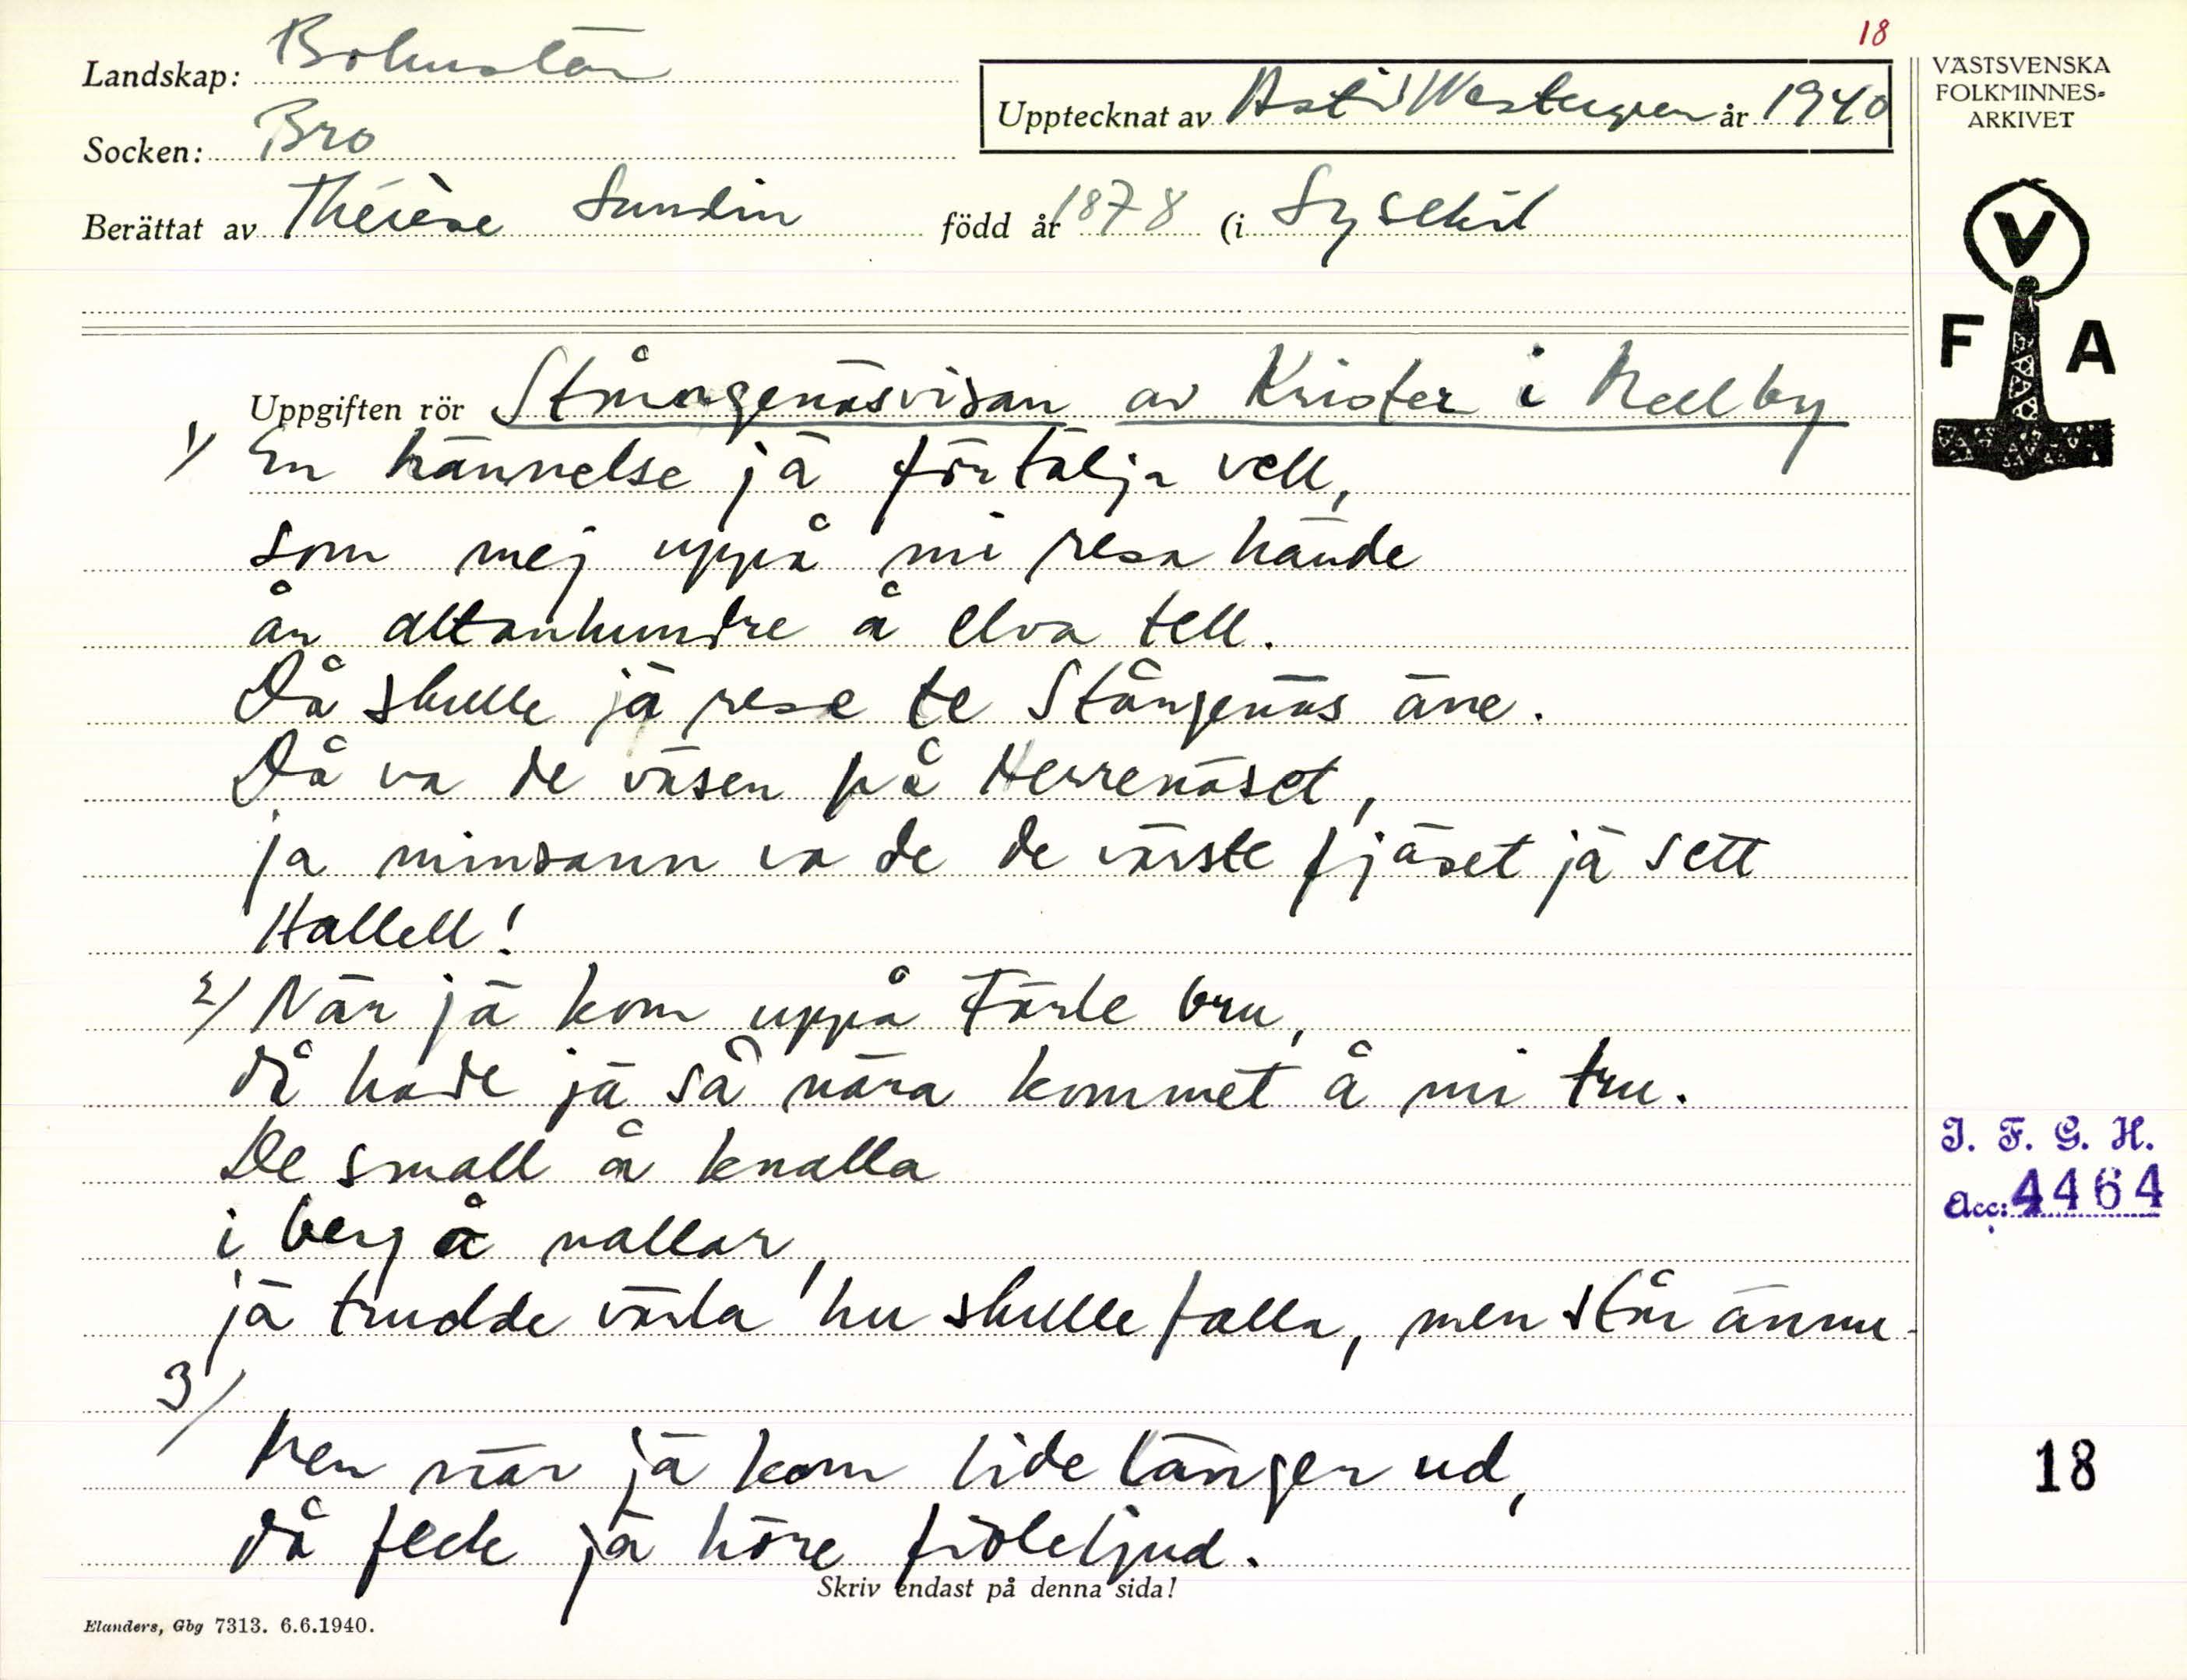 18
Landskap: Bohuslän
Upptecknat av Astrid Westergren år 1940
Socken: Bro
Berättat av Thérèse Sundin född år 1878 (i Lysekil
VÄSTSVENSKA
FOLKMINNES-
ARKIVET
V
F A
Uppgiften rör Stångenäsvisan av Krister i Mellby
1/ En hännelse jä förtälja vell,
som mej uppå mi resa hände
år attanhundre å elva tell.
Då skulle jä rese te Stångenäs äne.
Då va de väsen på Herrenäset,
ja minsann va de de värste fjäset jä sett
Hallell!
2/ När jä kom uppå Färle bru,
då hade jä så nära kommet å mi tru.
De small å knalla
i berg å vallar,
jä trudde värla hu skulle falla, men står ännu.
3/
Men när jä kom lide länger ud,
då feck jä höre fioleljud.
I. F. G. H.
Acc: 4464
18
Skriv endast på denna sida!
Elanders, Gbg 7313. 6.6.1940.